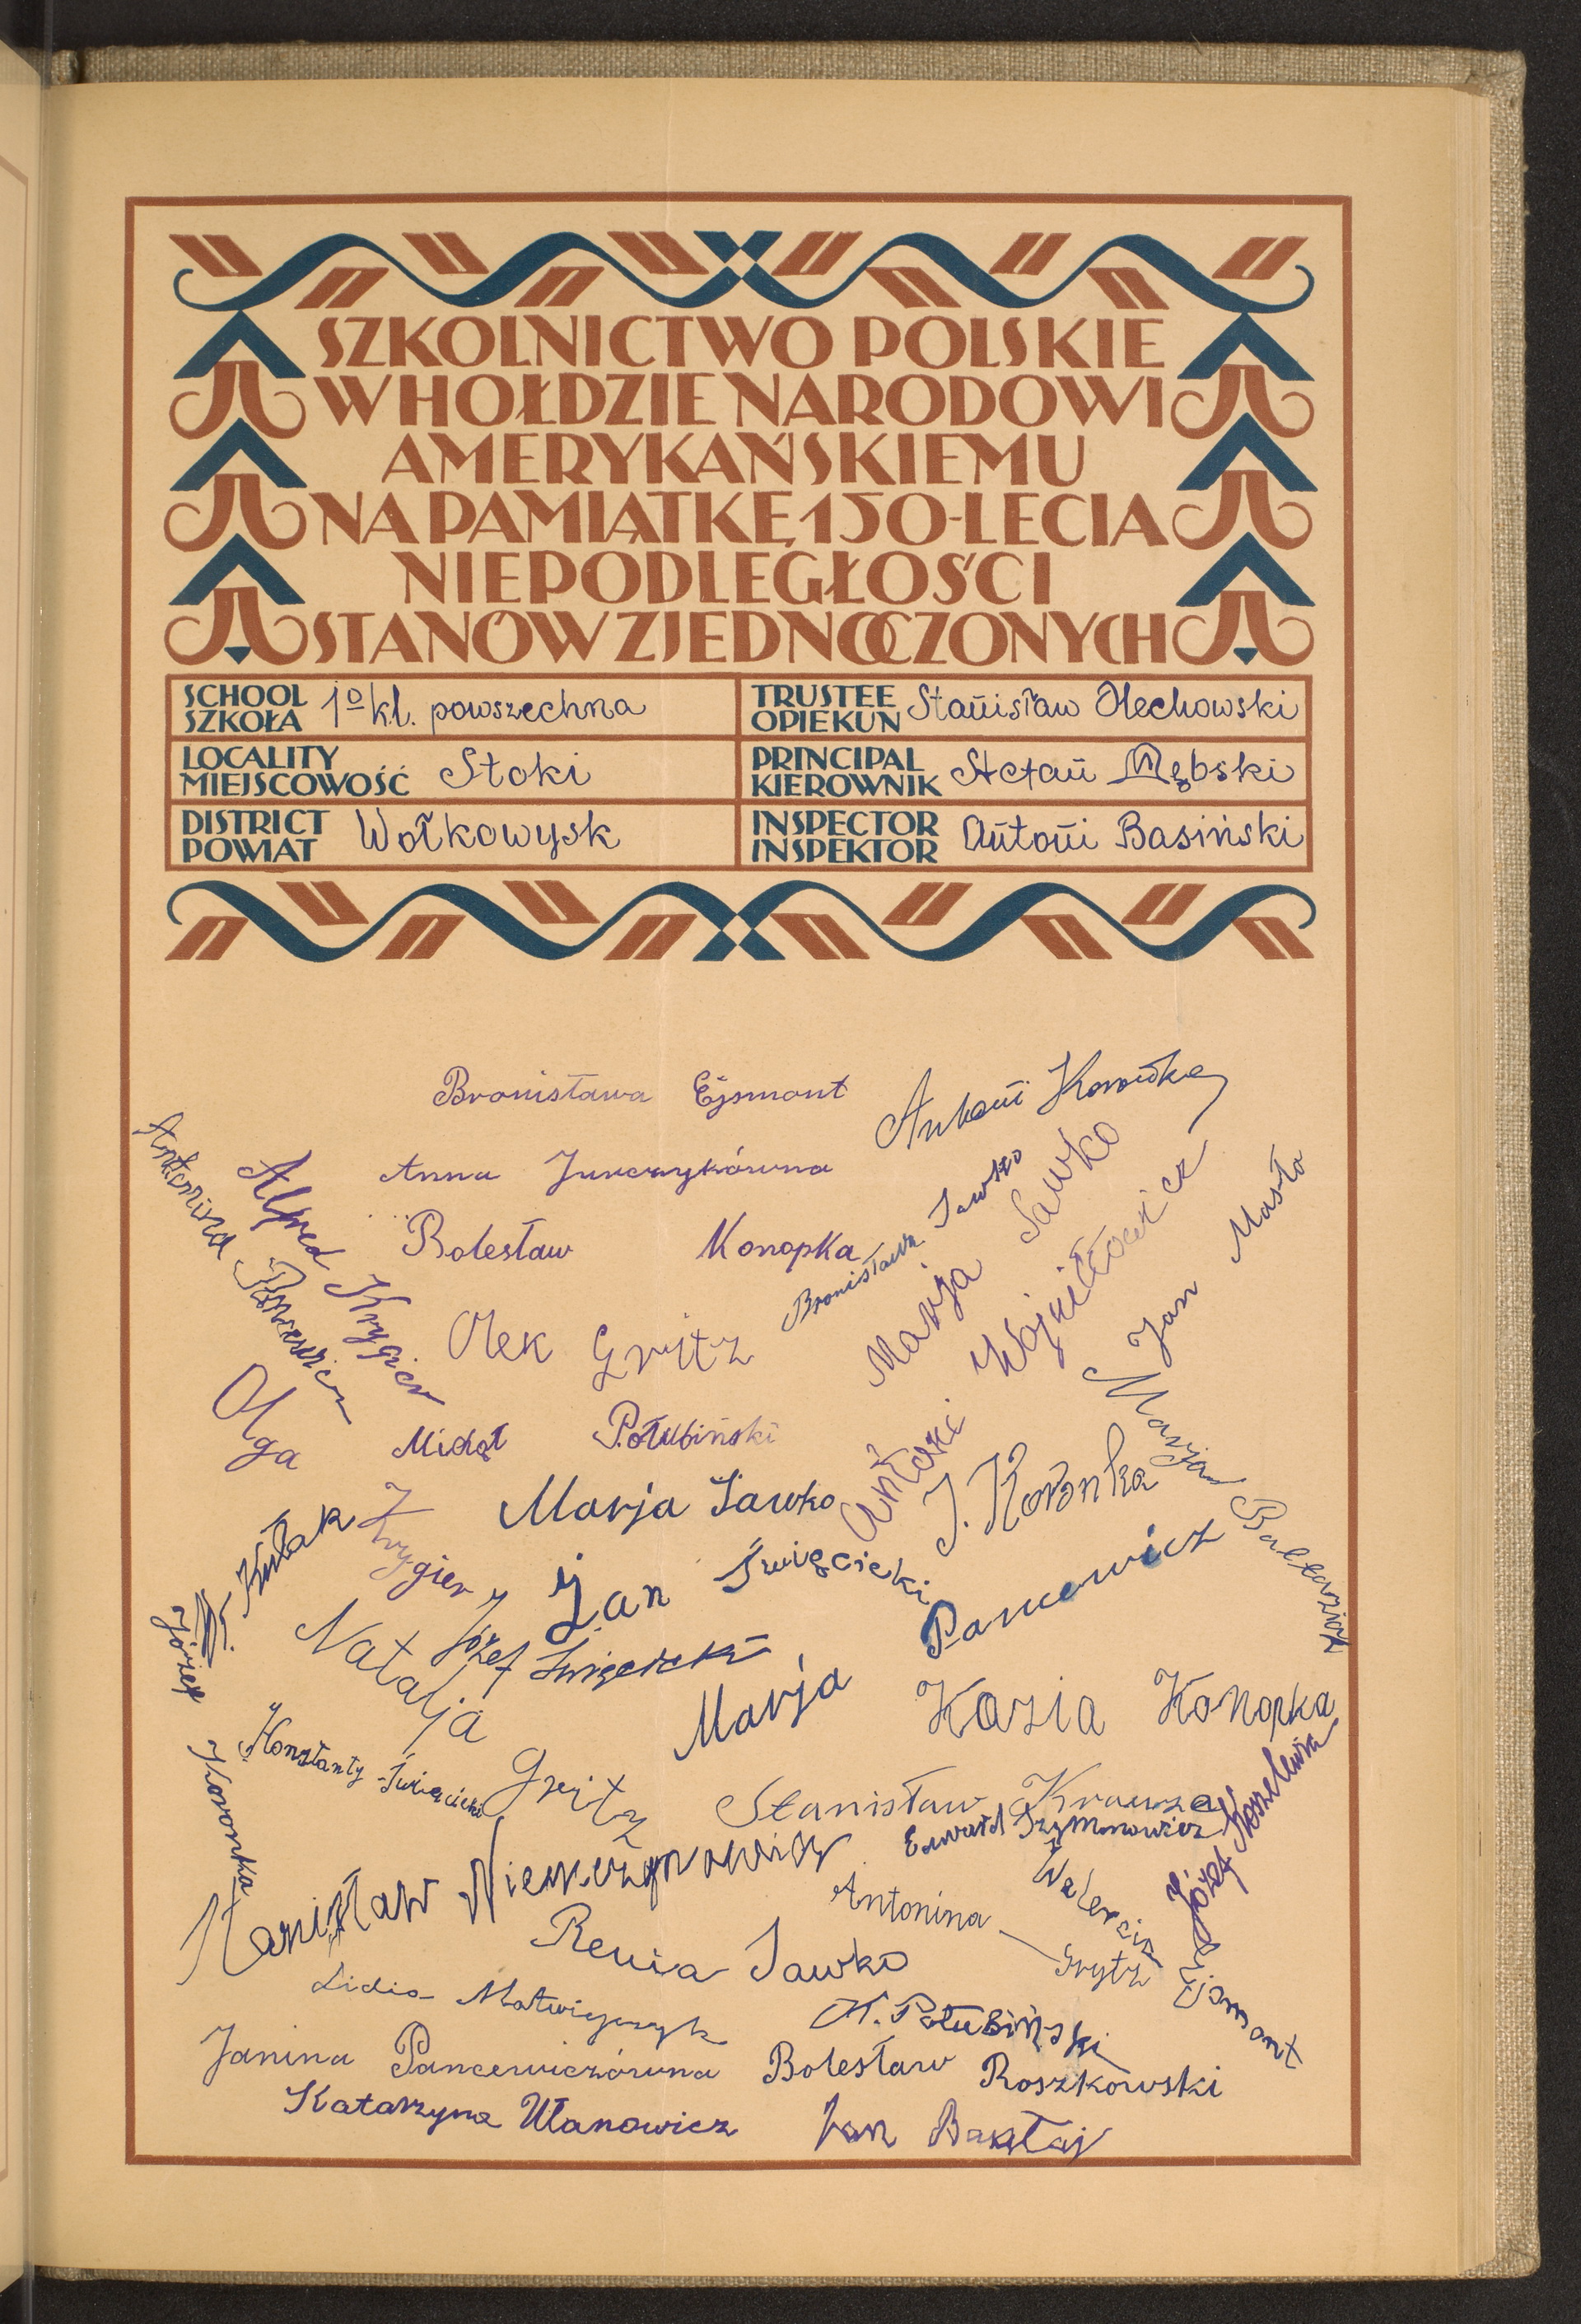 SZKOLNICTWO POLSKIE
W HOŁDZIE NARODOWI
AMERYKAŃSKIEMU
NA PAMIĄTKĘ 150-LECIA
NIEPODLEGŁOŚCI
STANÓW ZJEDNOCZONYCH
SCHOOL
SZKOŁA 1º kl. powszechna
TRUSTEE
OPIEKUN Stanisław Olechowski
LOCALITY
MIEJSCOWOŚĆ Stoki
PRINCIPAL
KIEROWNIK Stefan Dębski
DISTRICT
POWIAT Wołkowysk
INSPECTOR
INSPEKTOR Antoni Basiński
Bronisława Ejsmont
Antoni Koronka
Anna Jurczykówna
Antonina Pancewicz
Alfred Krygier
Bolesław Konopka
Bronisława Sawko
Marja Sawko
Antoni Wojnitłowicz
Jan Masło
Olek Grytz
Olga Krygier
Michał Połubiński
Marja Sawko
J. Koronka
Marja Bałtarzick
Kułak
Jan Święcicki
Józef Święcicki
Marja Pancewicz
Natalja Grytz
Józef Koronka
Kazia Konopka
Konstanty Święcicki
Stanisław Krauze
Edward Szymonowicz
Józef Koszelewski
Stanisław Niewczynowicz
Antonina Grytz
Walercia Ejsmont
Renia Sawko
Lidia Matwiejczyk
K. Połubiński
Janina Pancewiczówna
Bolesław Roszkowski
Katarzyna Ułanowicz
Jan Bakłaj